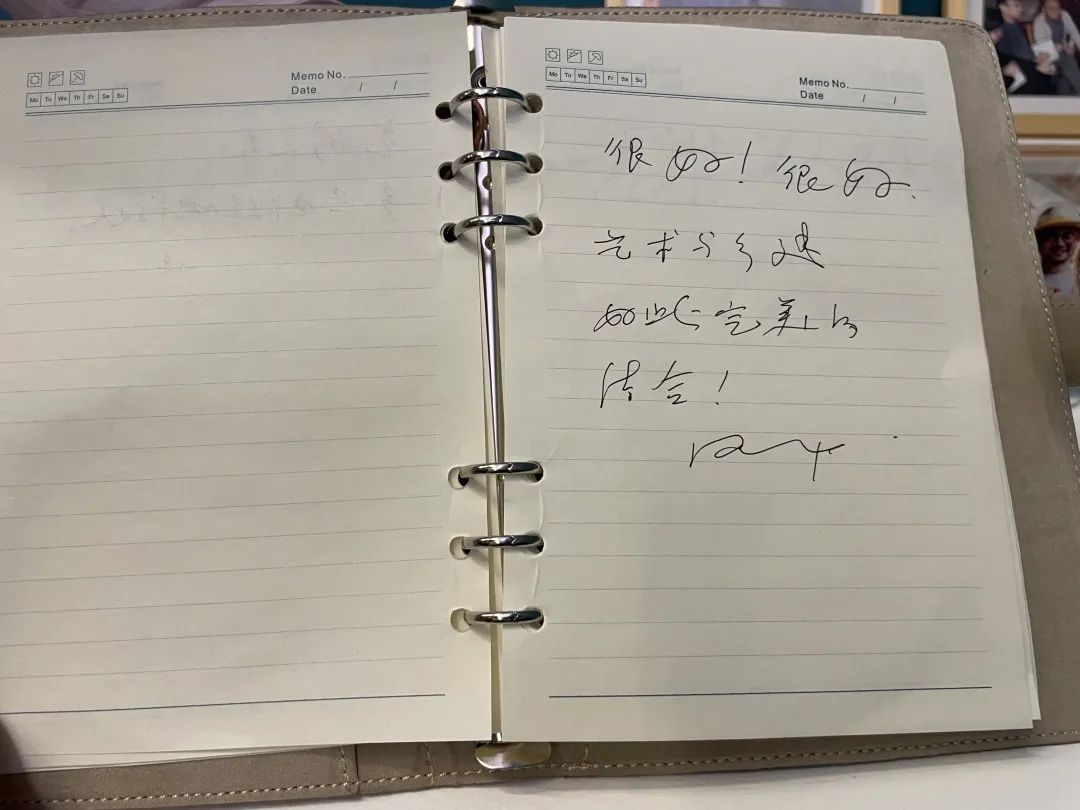 Memo No.
Date / /
Mo Tu We Th Fr Sa Su
Memo No.
Date / /
Mo Tu We Th Fr Sa Su
很好！很好.
艺术与乡建
如此完美的
结合！